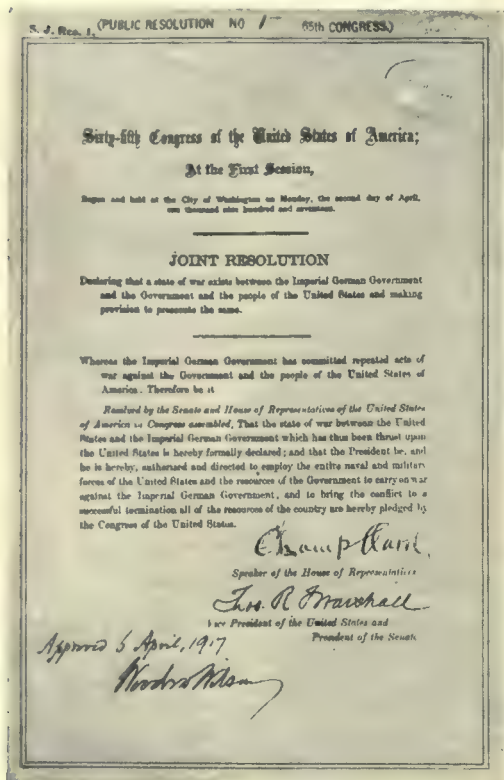 S. J. Res. 1. (PUBLIC RESOLUTION NO 1- 65th CONGRESS)
Sixty-fifth Congress of the United States of America;
At the First Session,
Begun and held at the City of Washington on Monday, the second day of April,
one thousand nine hundred and seventeen.
JOINT RESOLUTION
Declaring that a state of war exists between the Imperial German Government
and the Government and the people of the United States and making
provision to prosecute the same.
Whereas the Imperial German Government has committed repeated acts of
war against the Government and the people of the United States of
America: Therefore be it
Resolved by the Senate and House of Representatives of the United States
of America in Congress assembled, That the state of war between the United
States and the Imperial German Government which has thus been thrust upon
the United States is hereby formally declared; and that the President be, and
he is hereby, authorized and directed to employ the entire naval and military
forces of the United States and the resources of the Government to carry on war
against the Imperial German Government, and to bring the conflict to a
successful termination all of the resources of the country are hereby pledged by
the Congress of the United States.
Champ Clark
Speaker of the House of Representatives
Thos. R. Marshall
Vice President of the United States and
President of the Senate
Approved 6 April, 1917
Woodrow Wilson